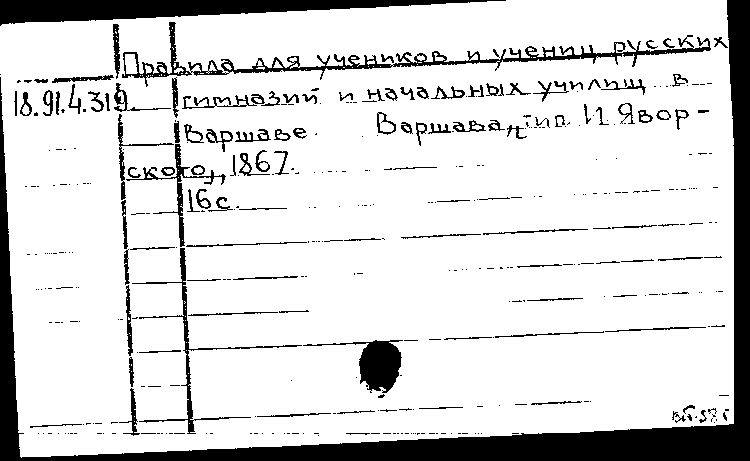 Правила для учеников и учениц русских
18.91.4.319. гимназий и начальных училищ в
Варшаве. Варшава, тип. И Явор-
ского, 1867.
16 с.